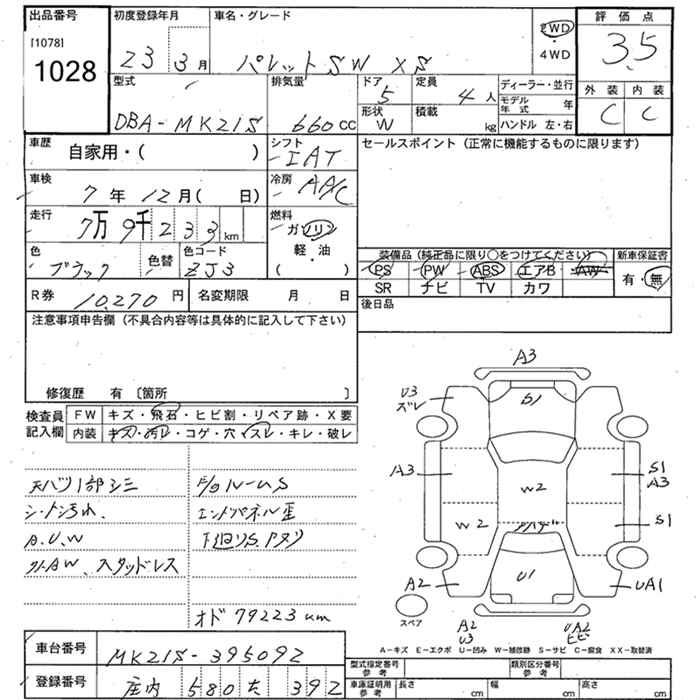 出品番号 初度登録年月 車名・グレード 評価点
[1078]
1028
23 3月 パレットSW XS 2WD ・ 4WD 3.5
型式 排気量 ドア 定員 ディーラー・並行 外装 内装
DBA-MK21S 660cc 5 4人 モデル年式 年 C C
形状 積載
W kg ハンドル 左・右
車歴 シフト セールスポイント(正常に機能するものに限ります)
自家用・( ) IAT
車検 冷房
7年 12月( 日) AA/C
走行 燃料
7万9千233km ガソリン
軽・油
( )
色 色替 色コード 装備品(純正品に限り○をつけてください) 新車保証書
ブラック ZJ3 PS PW ABS エアB AW 有・無
SR ナビ TV カワ
R券 10,270円 名変期限 月 日 後日品
注意事項申告欄(不具合内容等は具体的に記入して下さい)
修復歴 有 〔箇所 〕
検査員記入欄
FW キズ・飛石・ヒビ割・リペア跡・X要
内装 キズ・汚レ・コゲ・穴・スレ・キレ・破レ
天バリ1部シミ
シート汚れ
A.U.W
外AW、スタッドレス
F/Gルーム S
エンドパネル歪
下廻りS.アタリ
オド 79223km
A3
U3
ズレ
G1
A3
S1
A3
W2
W2
S1
A2
U1
UA1
スペア
A2
U3
UA2
ヒビ
A-キズ E-エクボ U-凹み W-補修跡 S-サビ C-腐食 XX-取替済
車台番号 MK21S-395092
登録番号 庄内 580 た 392
型式指定番号 参考 類別区分番号 参考
車庫証明用 参考 長さ cm 幅 cm 高さ cm